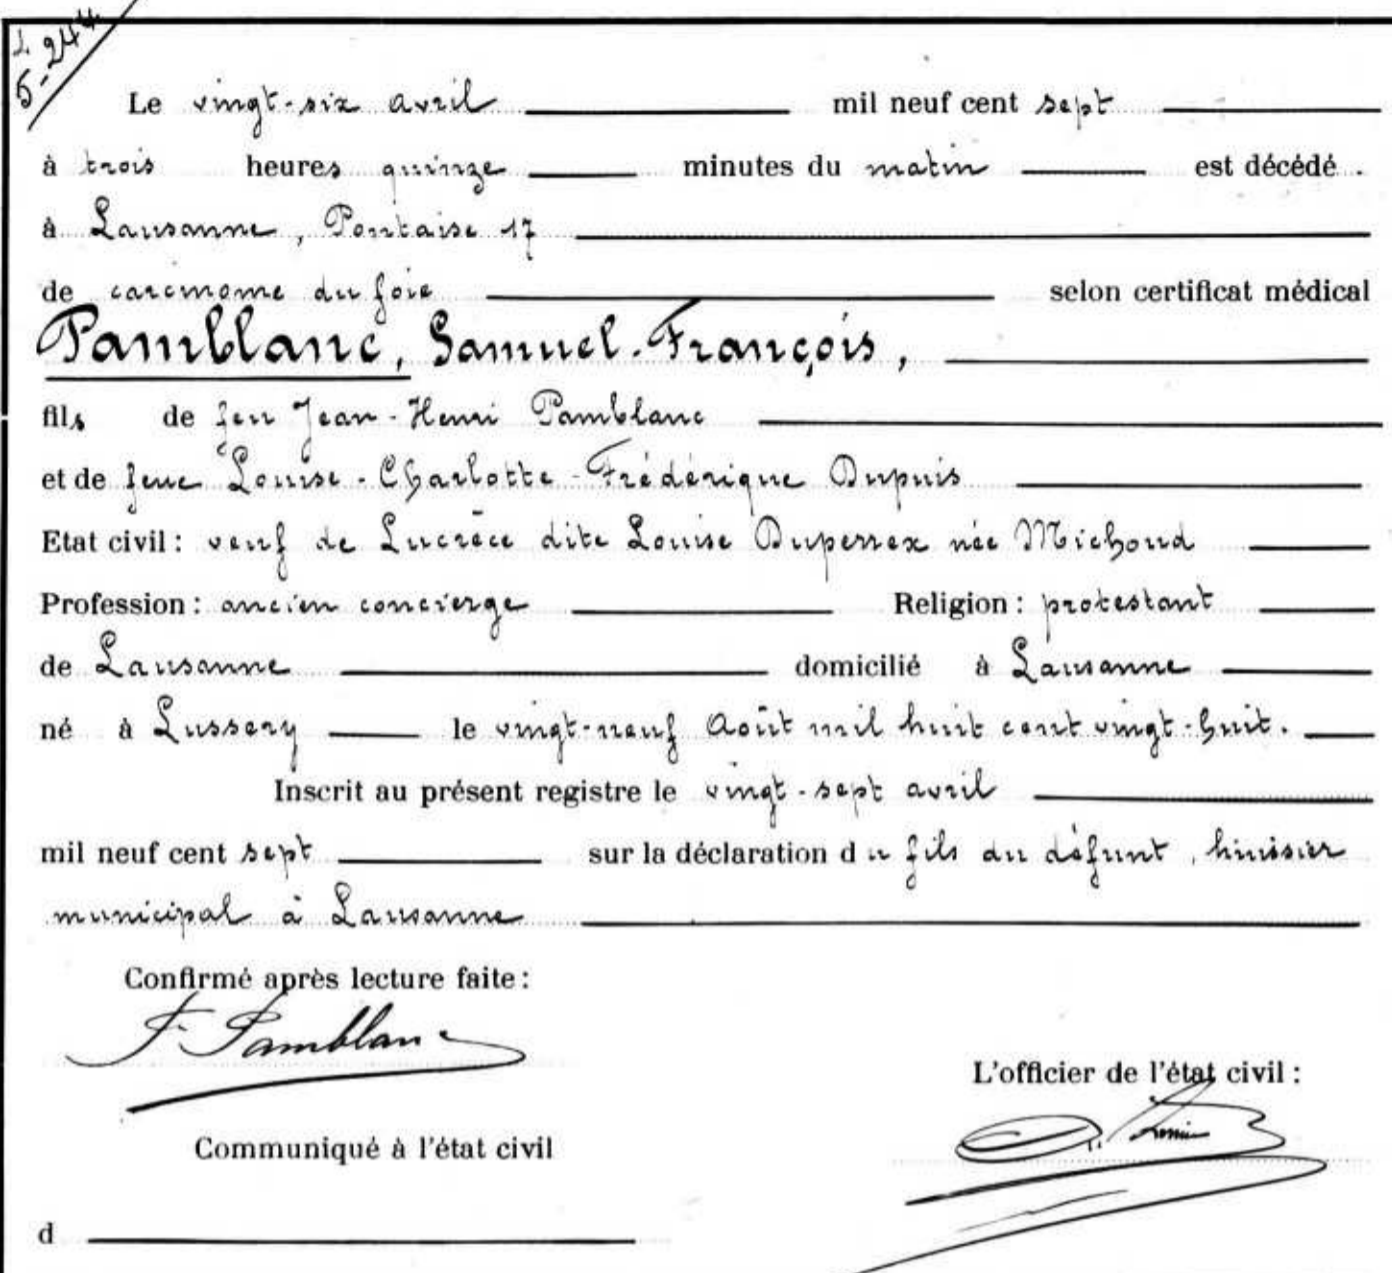 5-244
Le vingt-six avril mil neuf cent sept
à trois heures quinze minutes du matin est décédé
à Lausanne, Pontaise 17
de carcinome du foie selon certificat médical
Pamblanc, Samuel-François,
fils de feu Jean-Henri Pamblanc
et de feue Louise-Charlotte-Frédérique Dupuis
Etat civil : veuf de Lucrèce dite Louise Duperrex née Michoud
Profession : ancien concierge Religion : protestant
de Lausanne domicilié à Lausanne
né à Lussery le vingt-neuf Août mil huit cent vingt-huit.
Inscrit au présent registre le vingt-sept avril
mil neuf cent sept sur la déclaration du fils du défunt, huissier
municipal à Lausanne
Confirmé après lecture faite :
F. Pamblanc
L'officier de l'état civil :
Communiqué à l'état civil
d